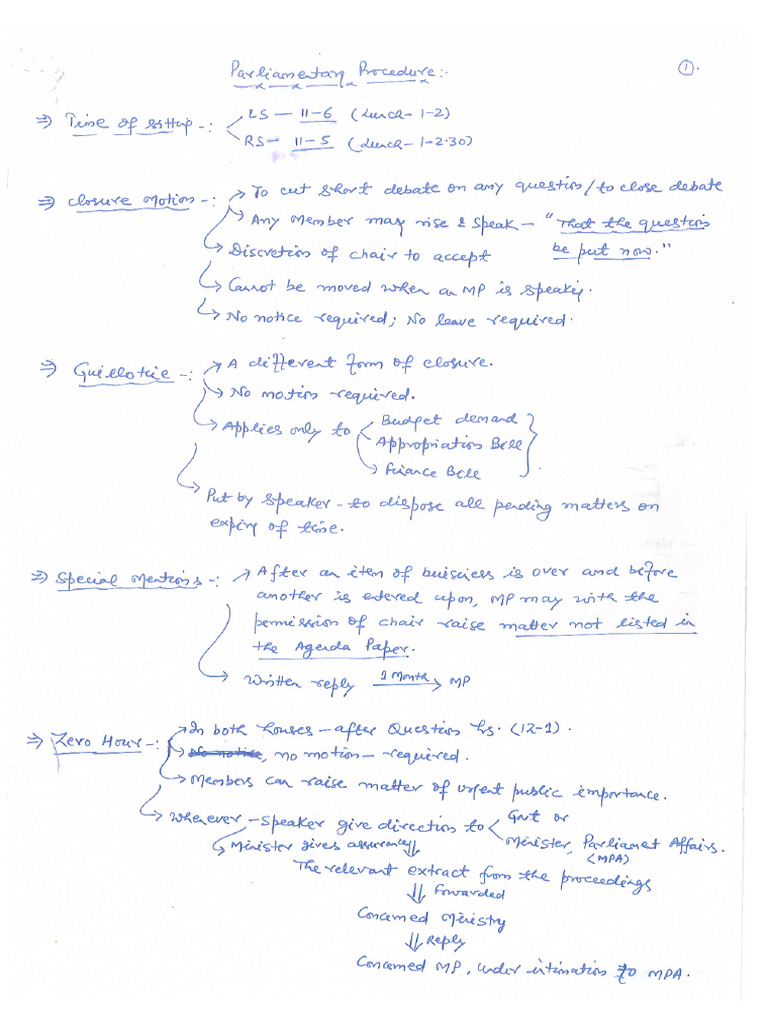 Parliamentary Procedure:-
①.
⇒ Time of sitting -: LS — 11-6 (Lunch- 1-2)
RS — 11-5 (Lunch- 1-2.30)
⇒ Closure Motion -: → To cut short debate on any question/to close debate
→ Any Member may rise & speak — "That the question
be put now."
→ Discretion of chair to accept
→ Cannot be moved when an MP is speaking.
→ No notice required; No leave required.
⇒ Guillotine -: → A different form of closure.
→ No motion required.
→ Applies only to Budget demand
Appropriation Bill
→ Finance Bill
→ Put by Speaker - to dispose all pending matters on
expiry of time.
⇒ Special Mentions -: → After an item of buisiness is over and before
another is entered upon, MP may with the
permission of chair raise matter not listed in
the Agenda Paper.
→ Written reply 1 Month → MP
⇒ Zero Hour -: → In both houses - after Question hs. (12-1).
→ No notice, no motion - required.
→ Members can raise matter of urgent public importance.
→ Whenever - Speaker give direction to Govt or
Minister, Parliament Affairs.
(MPA)
→ Minister gives assurance ⇓
The relevant extract from the proceedings
⇓ Forwarded
Concerned Ministry
⇓ Reply
Concerned MP, under intimation to MPA.